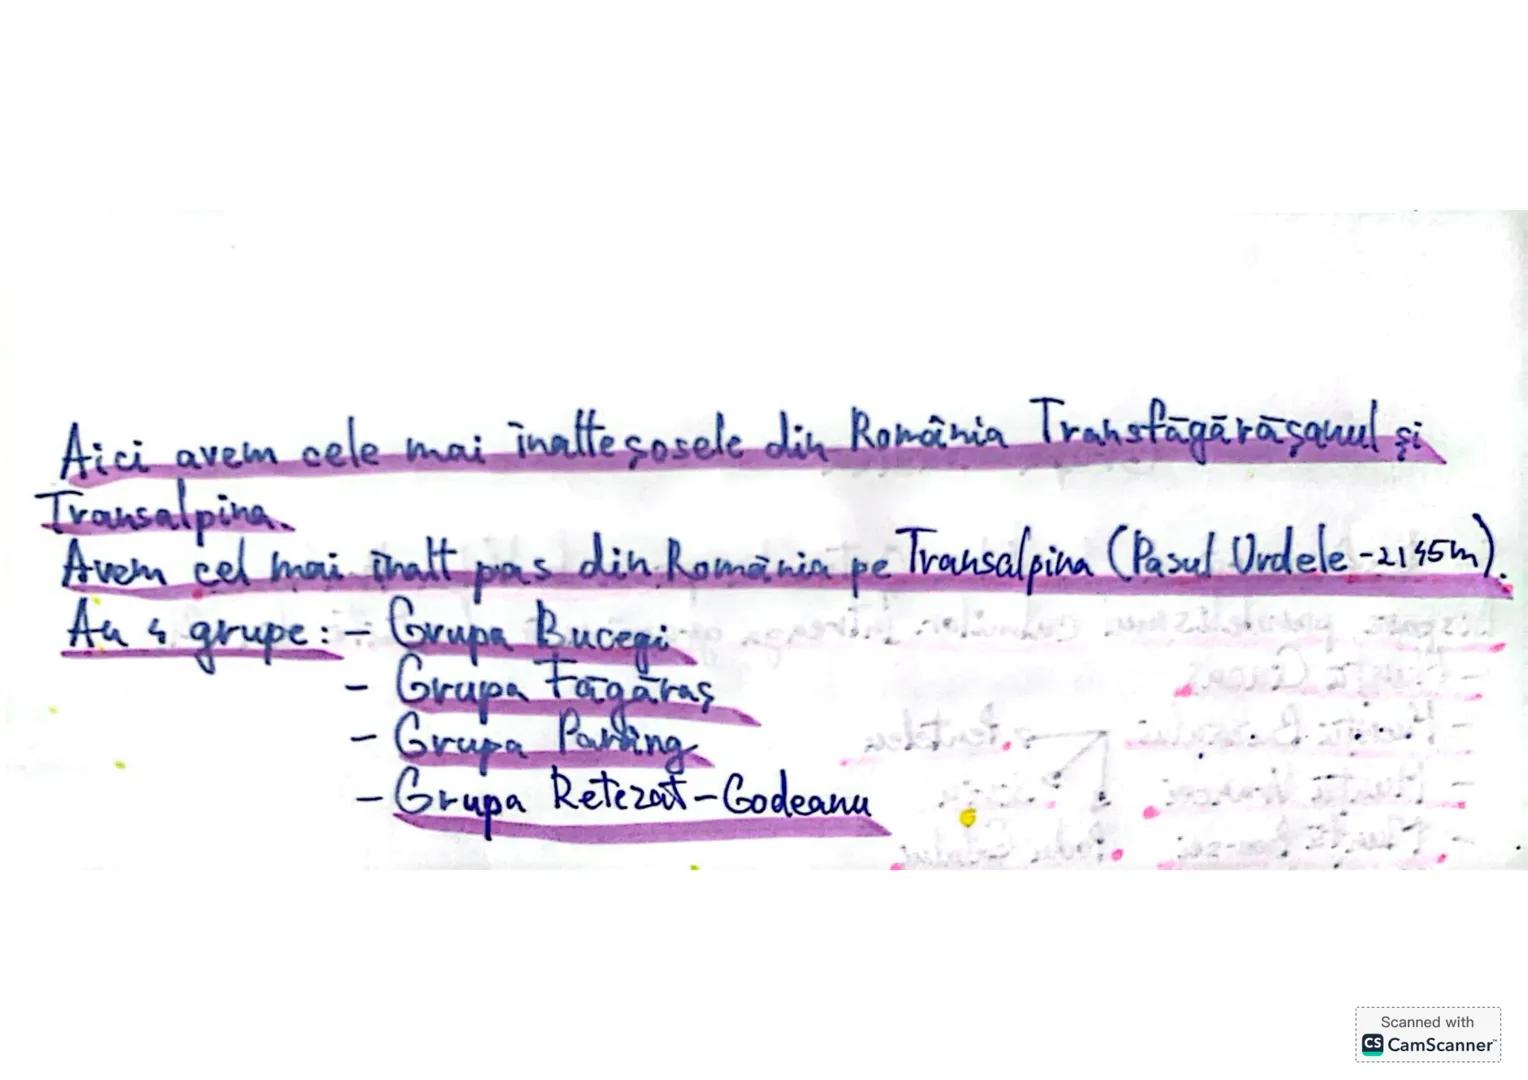 Aici avem cele mai înalte șosele din România Transfăgărășanul și
Transalpina.
Avem cel mai înalt pas din România pe Transalpina (Pasul Urdele -2145m).
Au 4 grupe: - Grupa Bucegi
- Grupa Făgăraș
- Grupa Parâng
- Grupa Retezat-Godeanu
Scanned with
CS CamScanner